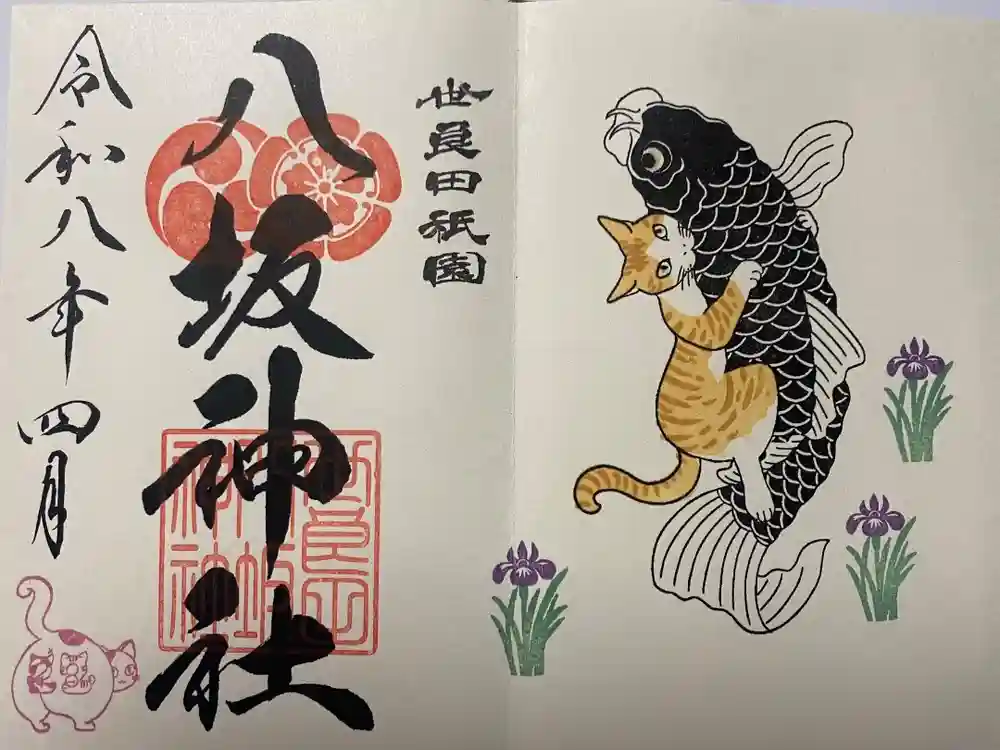 世良田祇園
八坂神社
令和八年四月